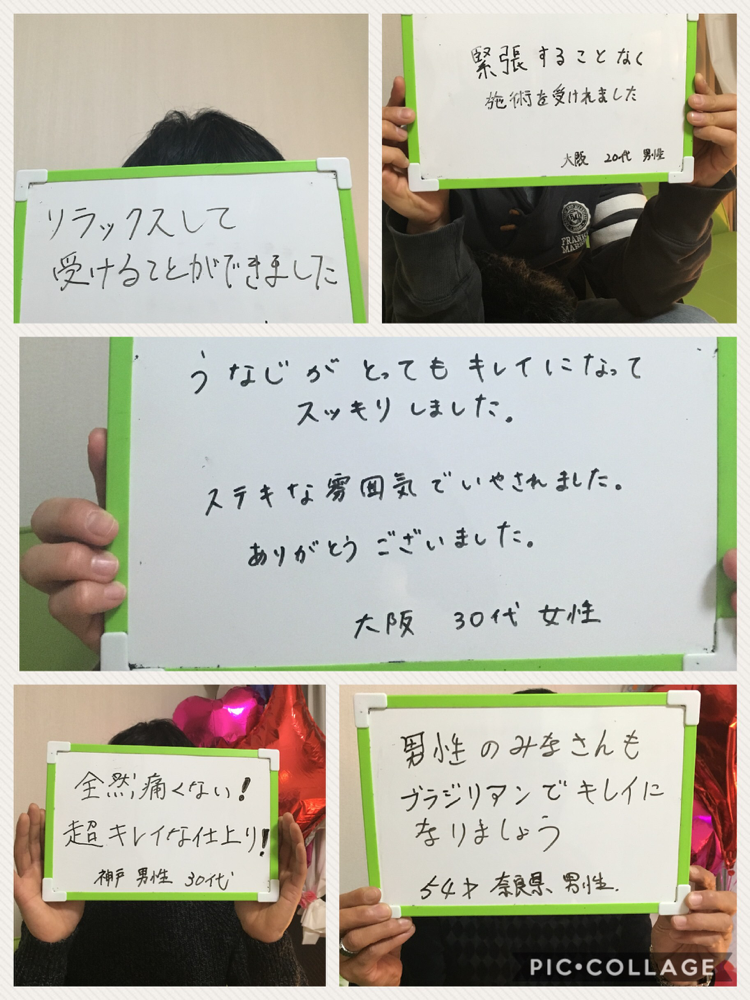 リラックスして
受けることができました
緊張することなく
施術を受けれました
大阪 20代 男性
FRANK
うなじがとってもキレイになって
スッキリしました。
ステキな雰囲気でいやされました。
ありがとうございました。
大阪 30代 女性
全然痛くない!
超キレイな仕上り!
神戸 男性 30代
男性のみなさんも
ブラジリアンでキレイに
なりましょう
54才 奈良県、男性.
PIC•COLLAGE